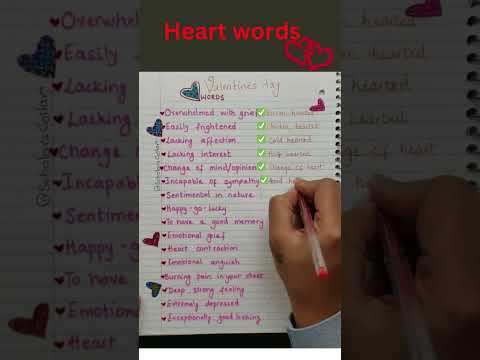 Heart words
Valentines day
WORDS
Overwhelmed with grief ✅ broken hearted
Easily frightened ✅ chicken hearted
Lacking affection ✅ cold hearted
Lacking interest ✅ Half hearted
Change of mind/opinion ✅ change of heart
Incapable of sympathy ✅
Sentimental in nature
Happy-go-lucky
To have a good memory
Emotional grief
Heart contraction
Emotional anguish
Burning pain in your chest
Deep strong feeling
Extremely depressed
Exceptionally good looking
Overwhelm
Easily
Lacking
Lacking
Change
Incapab
Sentimen
Happy-g
To have
Emotiona
Heart
hearted
hearted
hearted
of heart